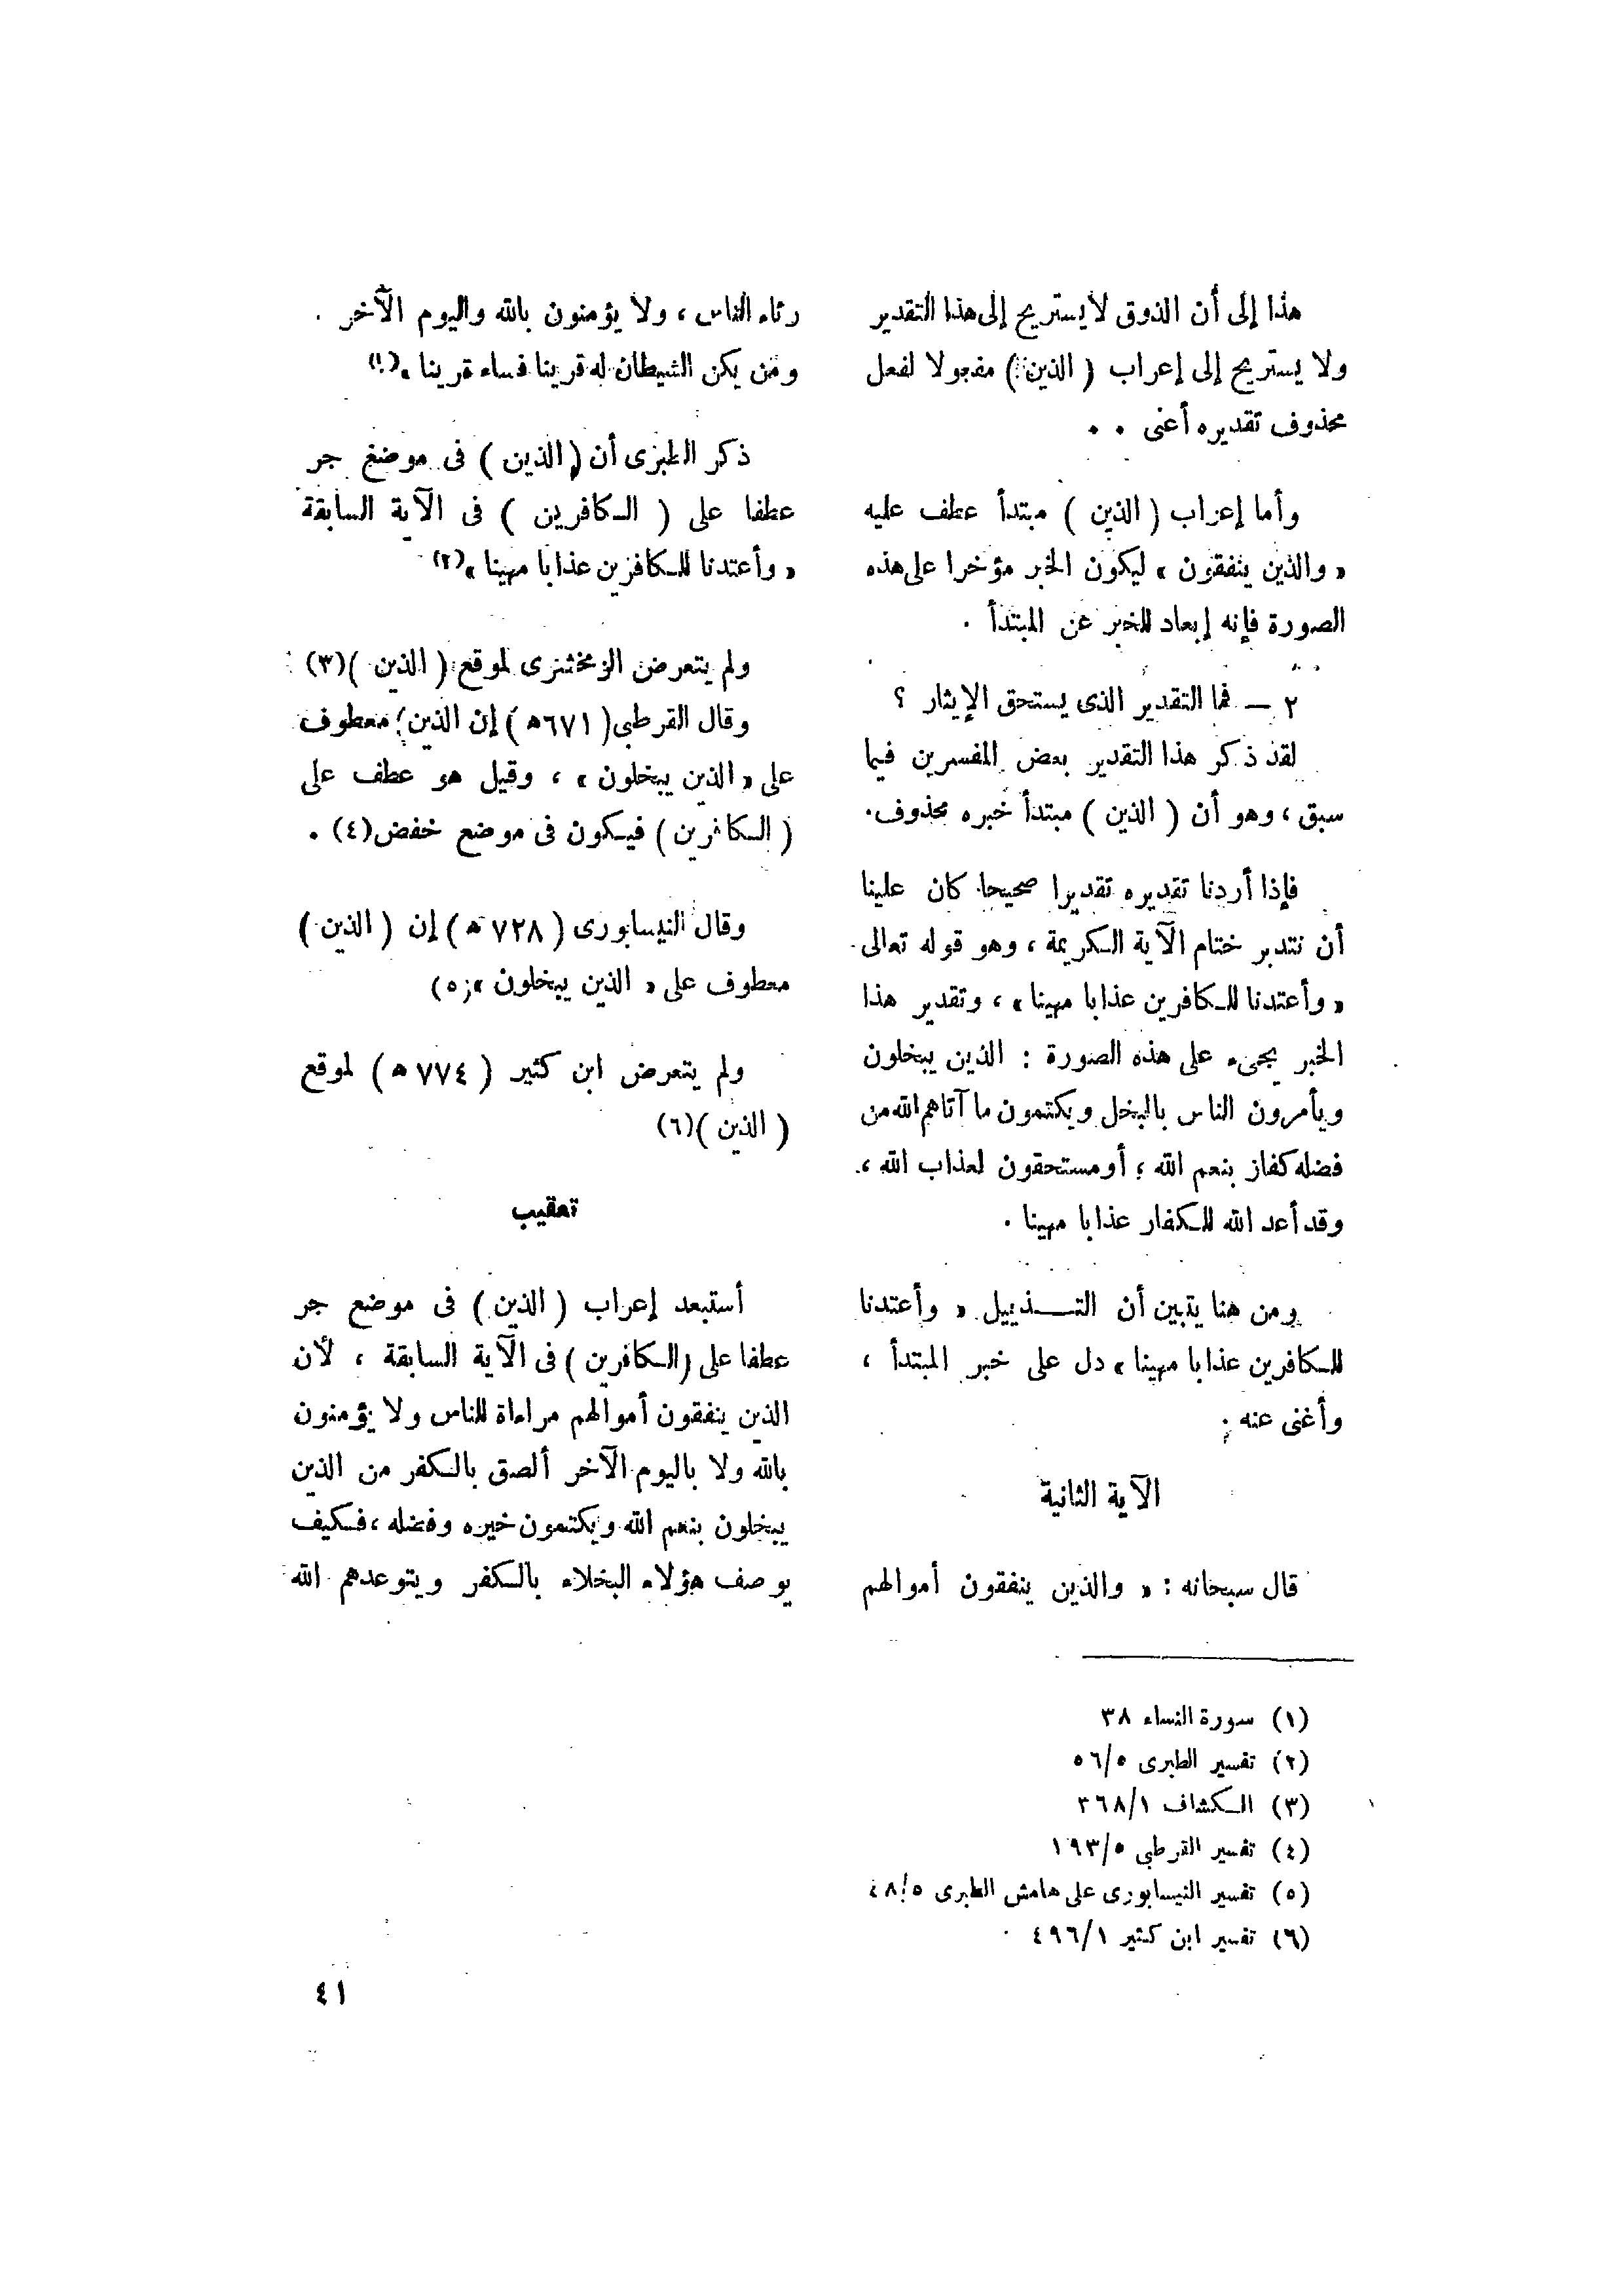 هذا إلى أن الذوق لا يستريح إلى هذا التقدير
ولا يستريح إلى إعراب ( الذين ) مفعولا لفعل
محذوف تقديره أعنى ٠ ٠
وأما إعراب ( الذين ) مبتدأ عطف عليه
« والذين ينفقون » ليكون الخبر مؤخرا على هذه
الصورة فإنه إبعاد للخبر عن المبتدأ .
٢ – فما التقدير الذى يستحق الإيثار ؟
لقد ذكر هذا التقدير بعض المفسرين فيما
سبق ، وهو أن ( الذين ) مبتدأ خبره محذوف.
فإذا أردنا تقديره تقديرا صحيحا كان علينا
أن نتدبر ختام الآية الكريمة ، وهو قوله تعالى
« وأعتدنا للكافرين عذابا مهينا » ، وتقدير هذا
الخبر يجىء على هذه الصورة : الذين يبخلون
ويأمرون الناس بالبخل ويكتمون ما آتاهم الله من
فضله كفار بنعم الله ؛ أو مستحقون لعذاب الله ،
وقد أعد الله للكفار عذابا مهينا .
ومن هنا يتبين أن التـــذييل « وأعتدنا
للكافرين عذابا مهينا » دل على خبر المبتدأ ،
وأغنى عنه .
الآية الثانية
قال سبحانه : « والذين ينفقون أموالهم
رئاء الناس ، ولا يؤمنون بالله واليوم الآخر .
ومن يكن الشيطان له قرينا فساء قرينا »(١)
ذكر الطبرى أن ( الذين ) فى موضع جر
عطفا على ( الكافرين ) فى الآية السابقة
« وأعتدنا للكافرين عذابا مهينا »(٢)
ولم يتعرض الزمخشرى لموقع ( الذين )(٣)
وقال القرطبى ( ٦٧١ ه ) إن الذين معطوف
على « الذين يبخلون » ، وقيل هو عطف على
( الكافرين ) فيكون فى موضع خفض(٤) .
وقال النيسابورى ( ٧٢٨ ه ) إن ( الذين )
معطوف على « الذين يبخلون »(٥)
ولم يتعرض ابن كثير ( ٧٧٤ ه ) لموقع
( الذين )(٦)
تعقيب
أستبعد إعراب ( الذين ) فى موضع جر
عطفا على ( الكافرين ) فى الآية السابقة ، لأن
الذين ينفقون أموالهم مراءاة للناس ولا يؤمنون
بالله ولا باليوم الآخر ألصق بالكفر من الذين
يبخلون بنعم الله ويكتمون خيره وفضله ، فكيف
يوصف هؤلاء البخلاء بالكفر ويتوعدهم الله
(١) سورة النساء ٣٨
(٢) تفسير الطبرى ٥٦/٥
(٣) الكشاف ٣٦٨/١
(٤) تفسير القرطبى ١٩٣/٥
(٥) تفسير النيسابورى على هامش الطبرى ٤٨/٥
(٦) تفسير ابن كثير ٤٩٦/١ .
٤١